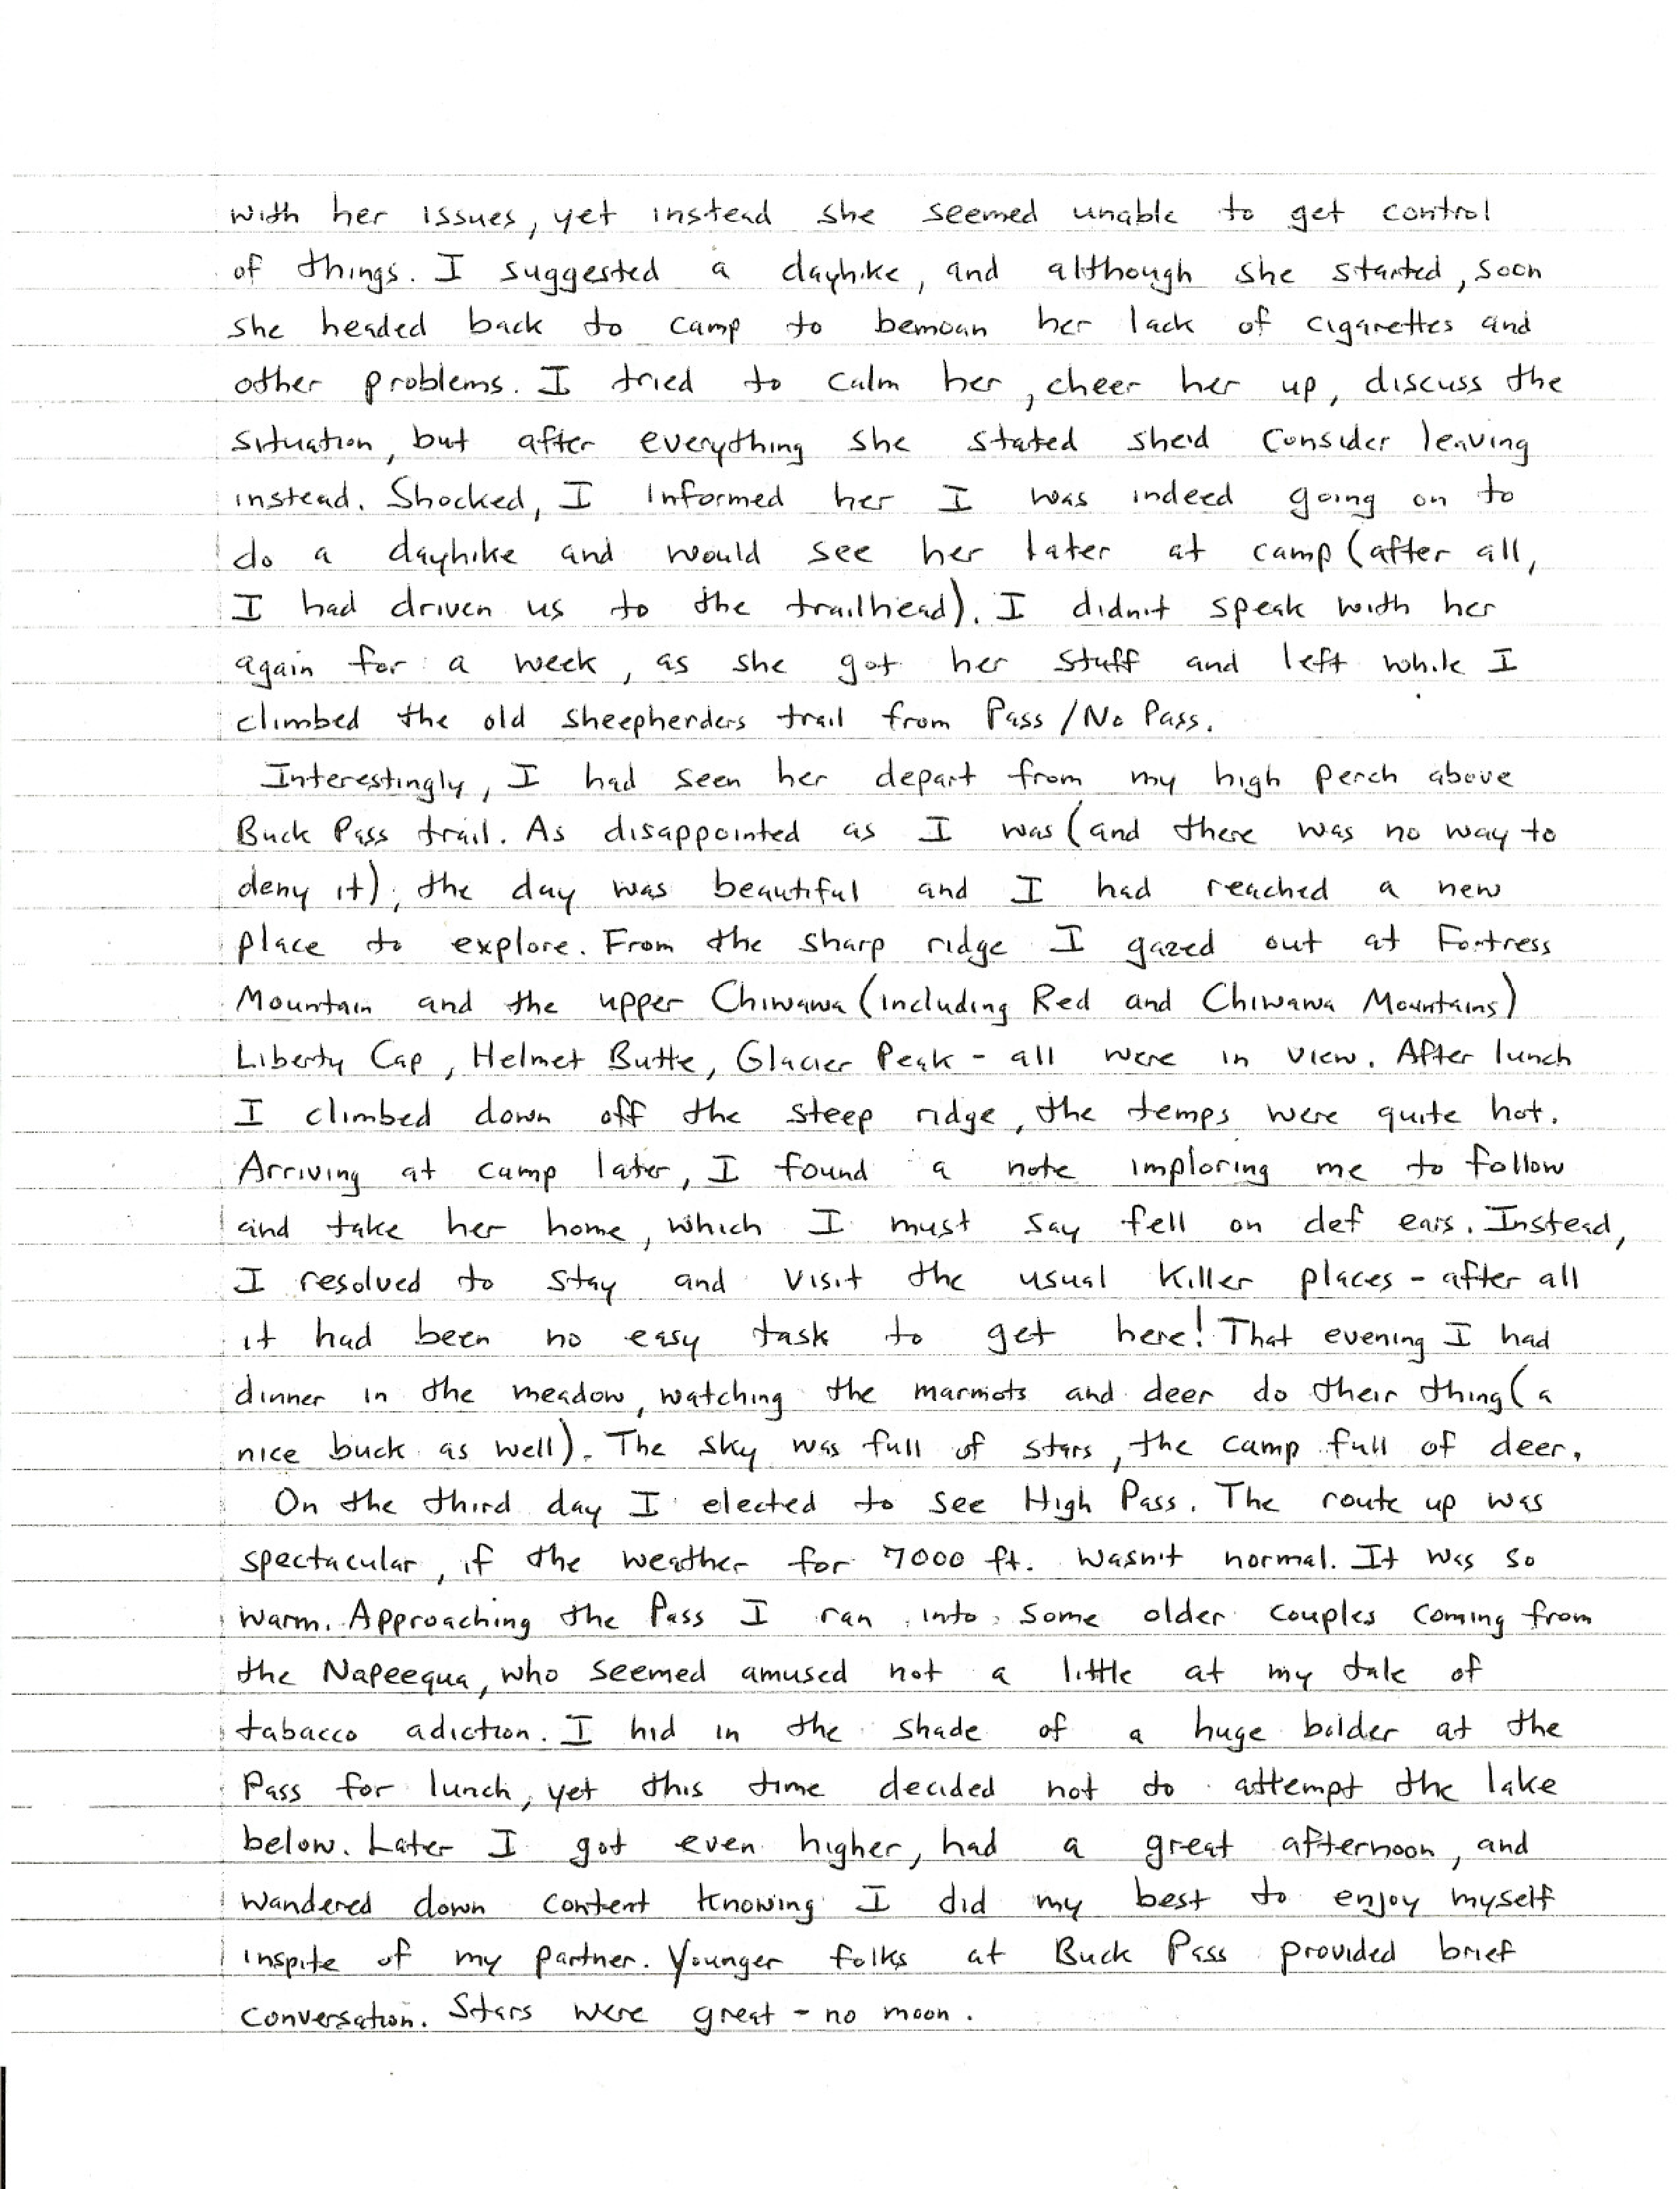 with her issues, yet instead she seemed unable to get control
of things. I suggested a dayhike, and although she started, soon
she headed back to camp to bemoan her lack of cigarettes and
other problems. I tried to calm her, cheer her up, discuss the
situation, but after everything she stated she'd consider leaving
instead. Shocked, I informed her I was indeed going on to
do a dayhike and would see her later at camp (after all,
I had driven us to the trailhead). I didn't speak with her
again for a week, as she got her stuff and left while I
climbed the old sheepherders trail from Pass/No Pass.
Interestingly, I had seen her depart from my high perch above
Buck Pass trail. As disappointed as I was (and there was no way to
deny it), the day was beautiful and I had reached a new
place to explore. From the sharp ridge I gazed out at Fortress
Mountain and the upper Chiwawa (including Red and Chiwawa Mountains)
Liberty Cap, Helmet Butte, Glacier Peak - all were in view. After lunch
I climbed down off the steep ridge, the temps were quite hot.
Arriving at camp later, I found a note imploring me to follow
and take her home, which I must say fell on def ears. Instead,
I resolved to stay and visit the usual killer places - after all
it had been no easy task to get here! That evening I had
dinner in the meadow, watching the marmots and deer do their thing (a
nice buck as well). The sky was full of stars, the camp full of deer.
On the third day I elected to see High Pass. The route up was
spectacular, if the weather for 7000 ft. wasn't normal. It was so
warm. Approaching the Pass I ran into some older couples coming from
the Napeequa, who seemed amused not a little at my tale of
tabacco adiction. I hid in the shade of a huge bolder at the
Pass for lunch, yet this time decided not to attempt the lake
below. Later I got even higher, had a great afternoon, and
wandered down content knowing I did my best to enjoy myself
inspite of my partner. Younger folks at Buck Pass provided brief
conversation. Stars were great - no moon.